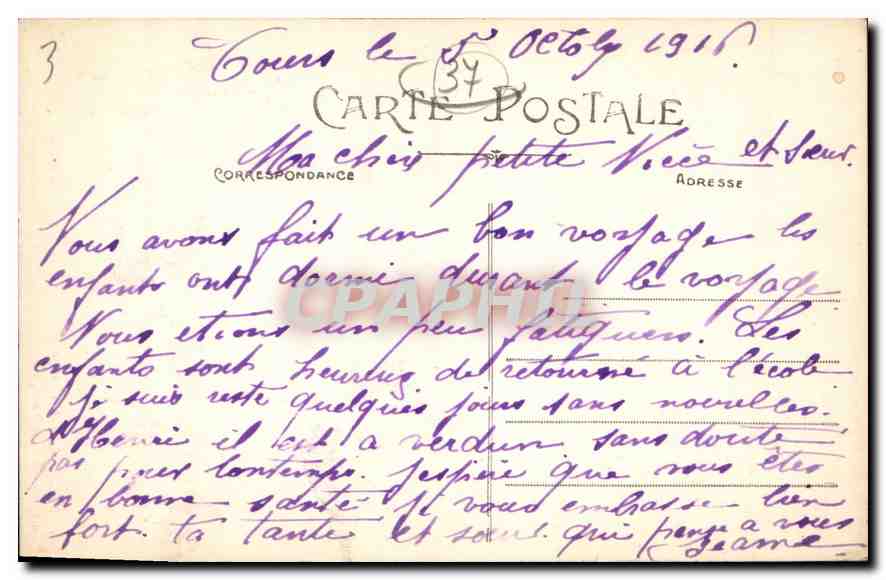 3
Tours le 5 Octobr 1916.
37
CARTE POSTALE
Ma chère petite Nièce et soeur.
CORRESPONDANCE
ADRESSE
Nous avons fait un bon voyage les
enfants ont dormi durant le voyage
Nous etions un peu fatiguers. Les
enfants sont heureux de retourné à l'école
je suis resté quelques jours sans nouvelles.
d'Henri il est a verdun sans doute
pas pour lontemps. j'espère que vous êtes
en bonne santé je vous embrasse bien
fort. ta tante et soeur qui pense a vous
Jeanne
CPAPHD